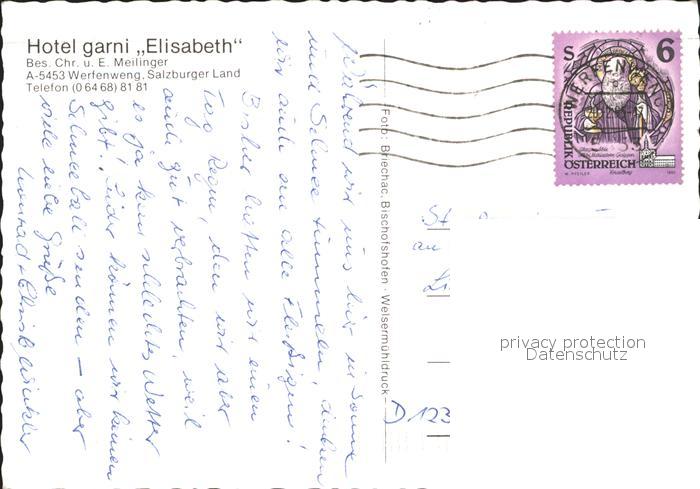 Hotel garni „Elisabeth“
Bes. Chr. u. E. Meilinger
A-5453 Werfenweng, Salzburger Land
Telefon (0 64 68) 81 81
Während wir uns hier in Sonne
und Schnee tummeln, denken
wir auch an alle Fleißigen!
Bisher hatten wir einen
Tag Regen, den wir aber
auch gut verbrachten, weil
es ja kein schlechtes Wetter
gibt! Leider können wir keinen
Schneeball senden – aber
viele liebe Grüße
Konrad +
Foto: Briechac, Bischofshofen - Welsermühldruck
S 6
REPUBLIK
ÖSTERREICH
St
an
D 123
privacy protection
Datenschutz